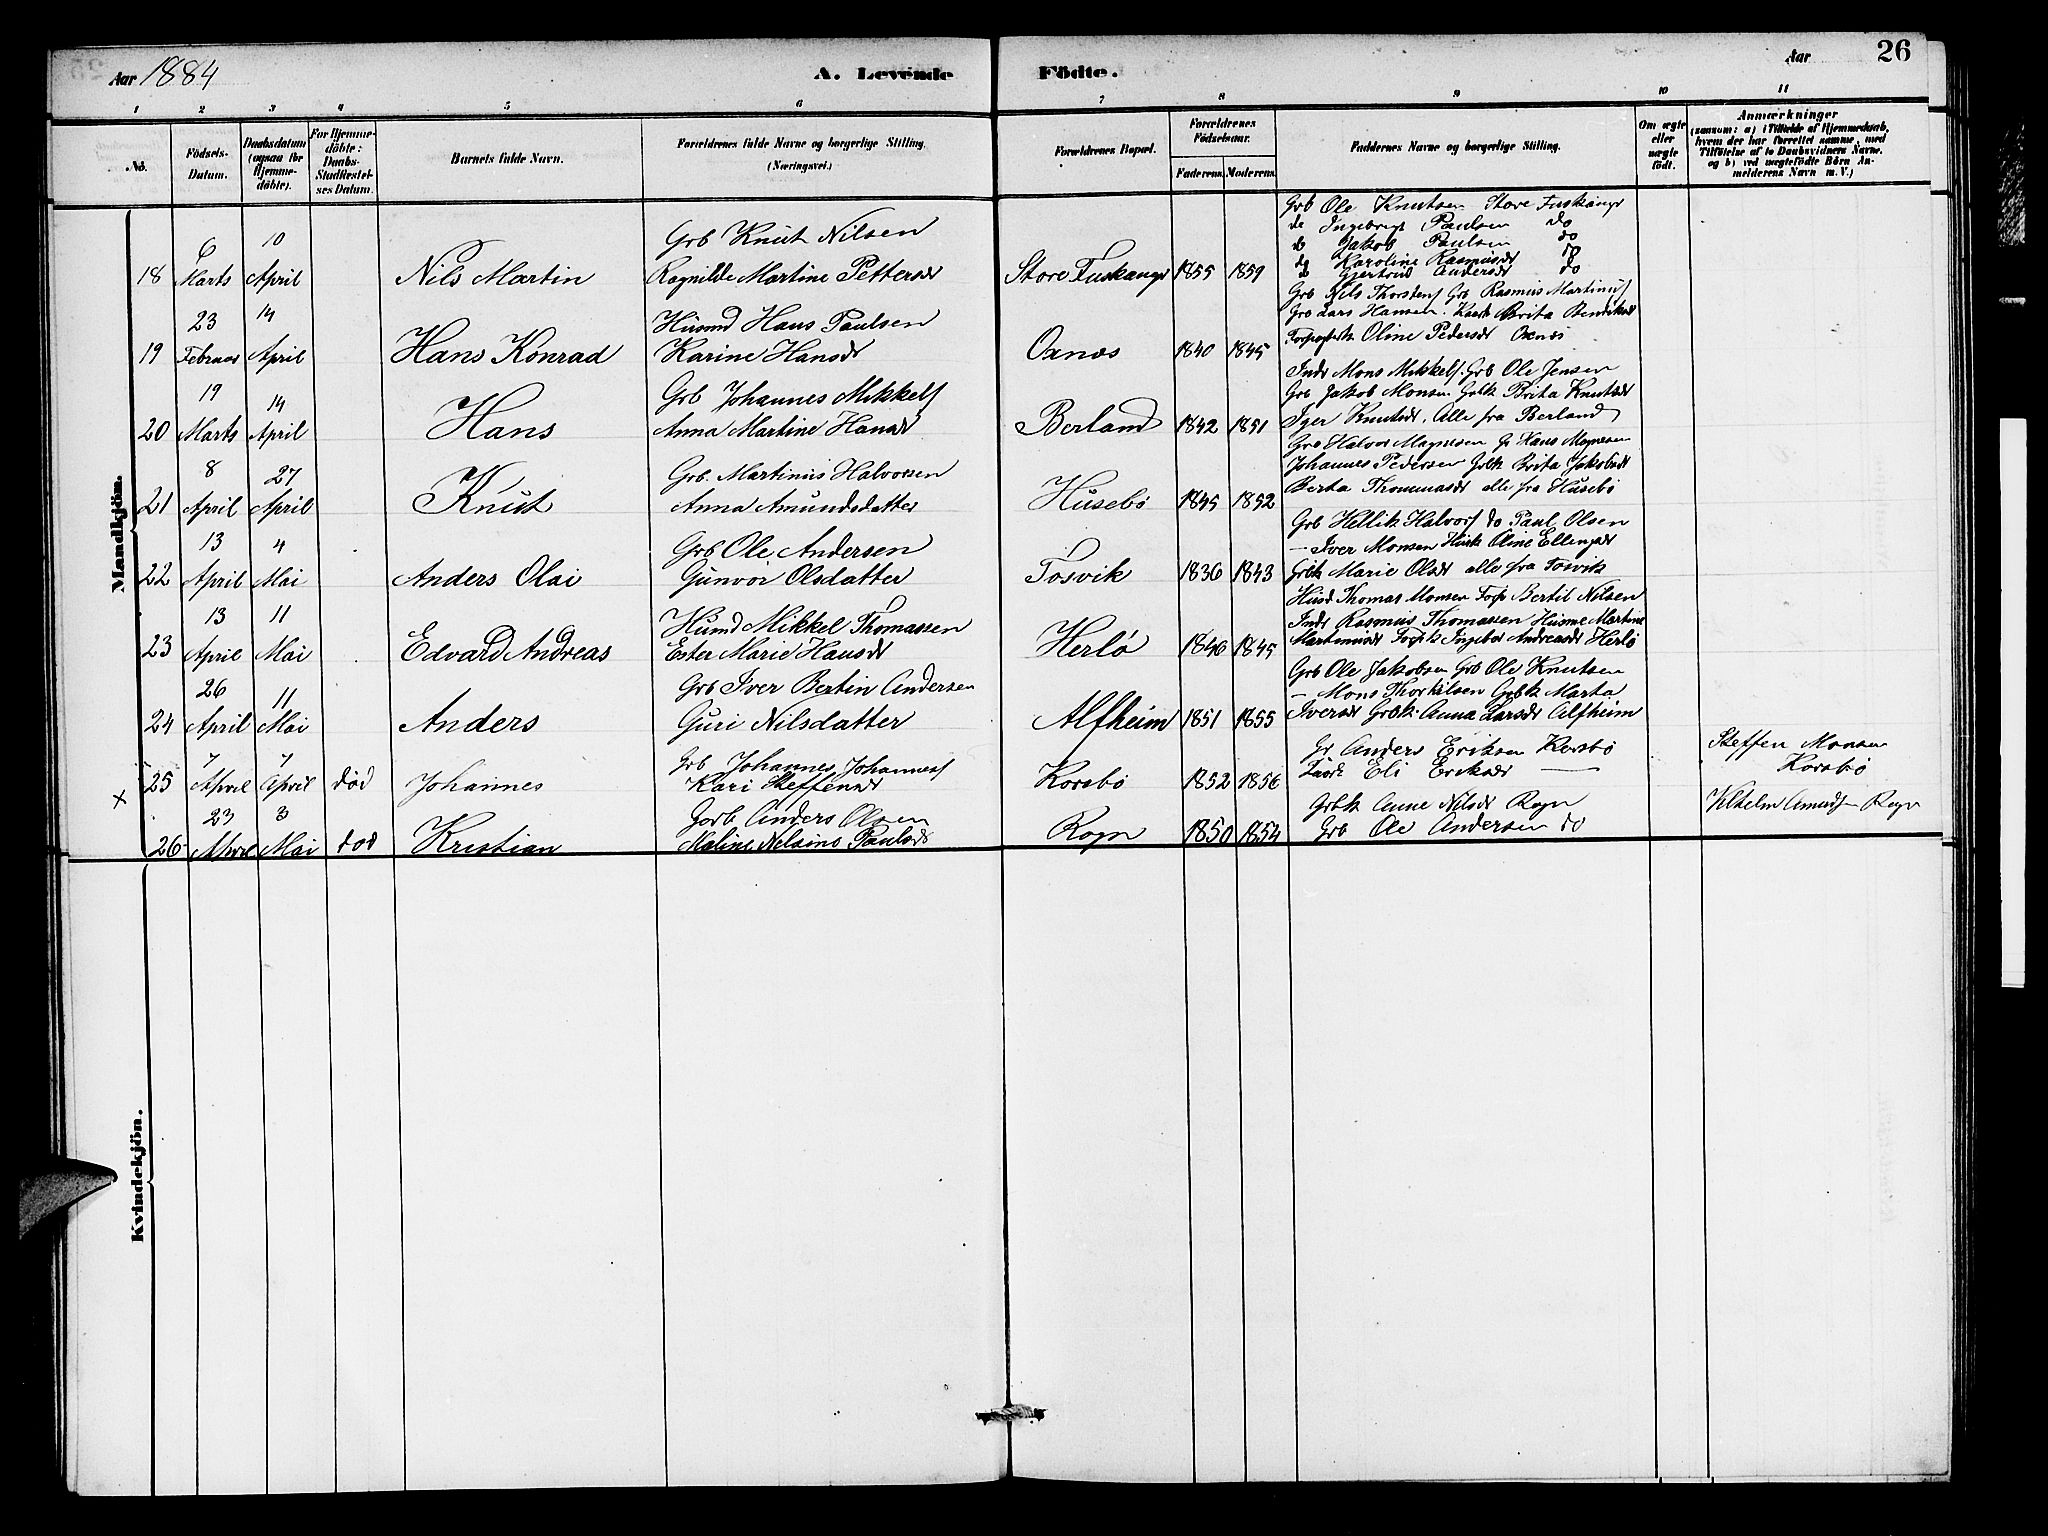 Aar 1884
A. Levende Födte.
Aar
26
1 2 3 4 5 6 7 8 9 10 11
No.
Födsels-Datum.
Daabsdatum (ogsaa for Hjemmedöbte).
For Hjemmedöbte: Daabs-Stadfæstelses Datum.
Barnets fulde Navn.
Forældrenes fulde Navne og borgerlige Stilling. (Næringsvei.)
Forældrenes Bopæl.
Forældrenes Födselsaar.
Faderens. Moderens.
Faddernes Navne og borgerlige Stilling.
Om ægte eller uægte födt.
Anmærkninger
(saasom: a) i Tilfælde af Hjemmedaab, hvem der har forrettet samme, med Tilföielse af to Daabsvidners Navne, og b) ved uægtefödte Börn Anmelderens Navn m. V.)
Mandkjön.
18 6 Marts 10 April Nils Martin
Grb Knut Nilsen
Ragnilde Martine Pettersdr
Store Fuskanger 1855 1859
Grb Ole Knutsen Store Fuskanger
do Ingebrigt Paulsen do
do Jakob Paulsen do
do Karoline Rasmusdr do
do Gjertrud Andersdr do
19 23 Februar 14 April Hans Konrad
Husmd Hans Paulsen
Karine Hansdr
Oxnæs 1840 1845
Grb Nils Thorstens Grb Rasmus Martinus
Grb Lars Hansen. Brita Bendiksdr
Oline Pedersdr Oxnæs
20 19 Marts 14 April Hans
Grb Johannes Mikkels
Anna Martine Hansdr
Berland 1842 1851
Inds Mons Mikkels. Grb Ole Jensen
Grb Jakob Monsen Grbk Brita Knutsdr
Knutsdr. Alle fra Berland
21 8 April 27 April Knut
Grb. Martinus Halvorsen
Anna Amundsdatter
Husebö 1845 1852
Grb Halvor Magnesen G Hans Magnesen
Johannes Pedersen Grbk Brita Jakobsdr
Berta Thommasdr alle fra Husebö
22 13 April 4 Mai Anders Olai
Grb Ole Andersen
Gunvor Olsdatter
Tosvik 1836 1843
Grb Hellik Halvors do Paul Olsen
— Iver Monsen Husk Oline Ellingsdr
Grbk Marie Olsdr alle fra Tosvik
23 13 April 11 Mai Edvard Andreas
Husmd Mikkel Thomassen
Ester Marie Hansdr
Herlö 1846 1845
Husmd Thomas Monsen Forp Bertil Nilsen
Inds Rasmus Thomassen Husme Martine
Martinusdr Forpk Ingebor Andreasdr Herlö
24 26 April 11 Mai Anders
Grb Iver Bertin Andersen
Guri Nilsdatter
Alfheim 1851 1855
Grb Ole Jakobsen Grb Ole Knutsen
— Mons Thorkilsen Grbk Marta
Iversdr Grbk. Anna Larsdr Alfheim
25 7 April 7 April död Johannes
Grb Johannes Johannes
Kari Steffensdr
Korsbö 1852 1856
Gr Anders Eriksen Korsbö
Eli Eriksdr —
Steffen Monsen
Korsbö
x
26 23 April 3 Mai död Kristian
Gorb Anders Olsen
Maline Nelsine Paulsdr
Rogn 1850 1854
Grbk Anne Nilsdr Rogn
Grb Ole Andersen do
Vilhelm Amuds Rogn
Kvindekjön.